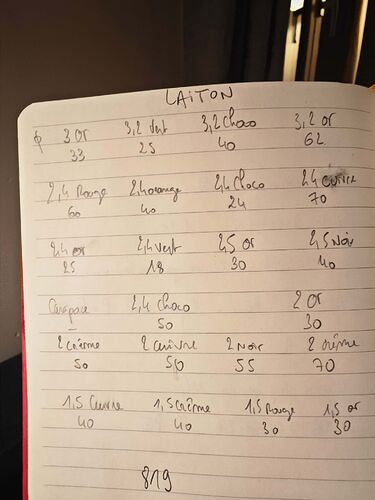 LAITON
ϕ 3 or 3,2 vert 3,2 choco 3,2 or
33 25 40 62
2,4 Rouge 2,4 orange 2,4 choco 2,4 cuivre
60 40 24 70
2,4 or 2,4 vert 2,5 or 2,5 Noir
25 18 30 40
2,4 choco 2 or
50 30
2 crème 2 cuivre 2 Noir 2 crème
50 50 55 70
1,5 cuivre 1,5 crème 1,5 Rouge 1,5 or
40 40 30 30
819